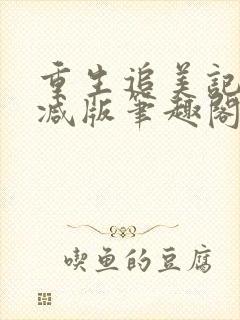 重生追美記
減版筆趣閣
喫鱼的豆腐